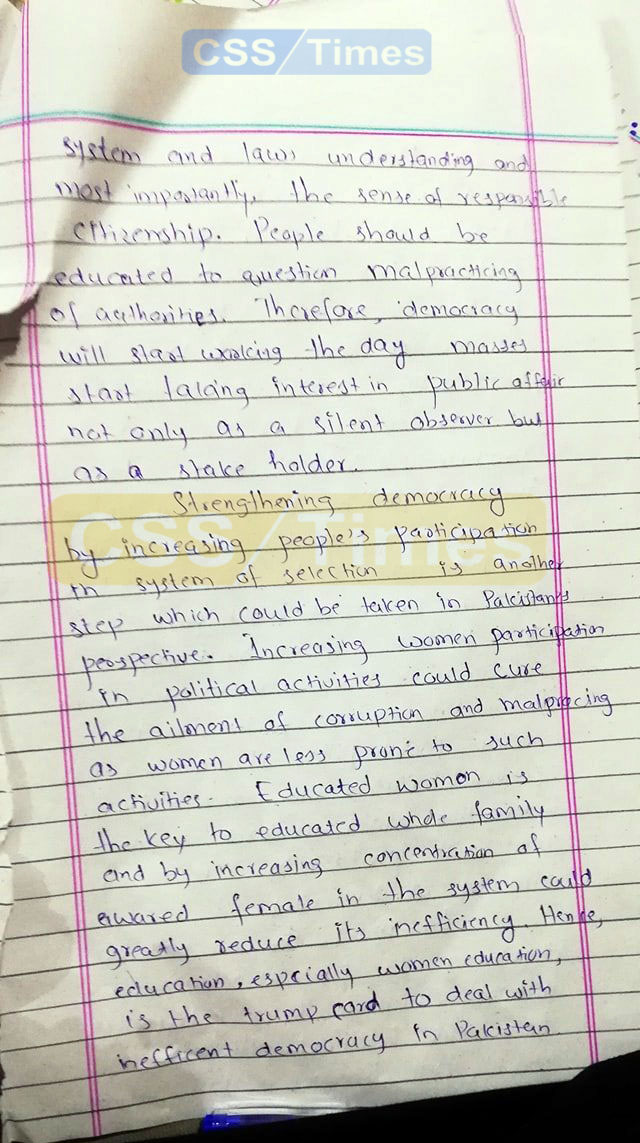 CSS/Times
system and laws understanding and
most importantly, the sense of responsible
citizenship. People should be
educated to question malpracticing
of authorities. Therefore, democracy
will start working the day masses
start taking interest in public affair
not only as a silent observer but
as a stake holder.
Strengthening democracy
CSS/Times
by increasing people's participation
in system of selection is another
step which could be taken in Pakistan's
perspective. Increasing women participation
in political activities could cure
the ailment of corruption and malpracing
as women are less prone to such
activities. Educated women is
the key to educated whole family
and by increasing concentration of
awared female in the system could
greatly reduce its inefficiency. Hence,
education, espcially women education,
is the trump card to deal with
inefficent democracy in Pakistan